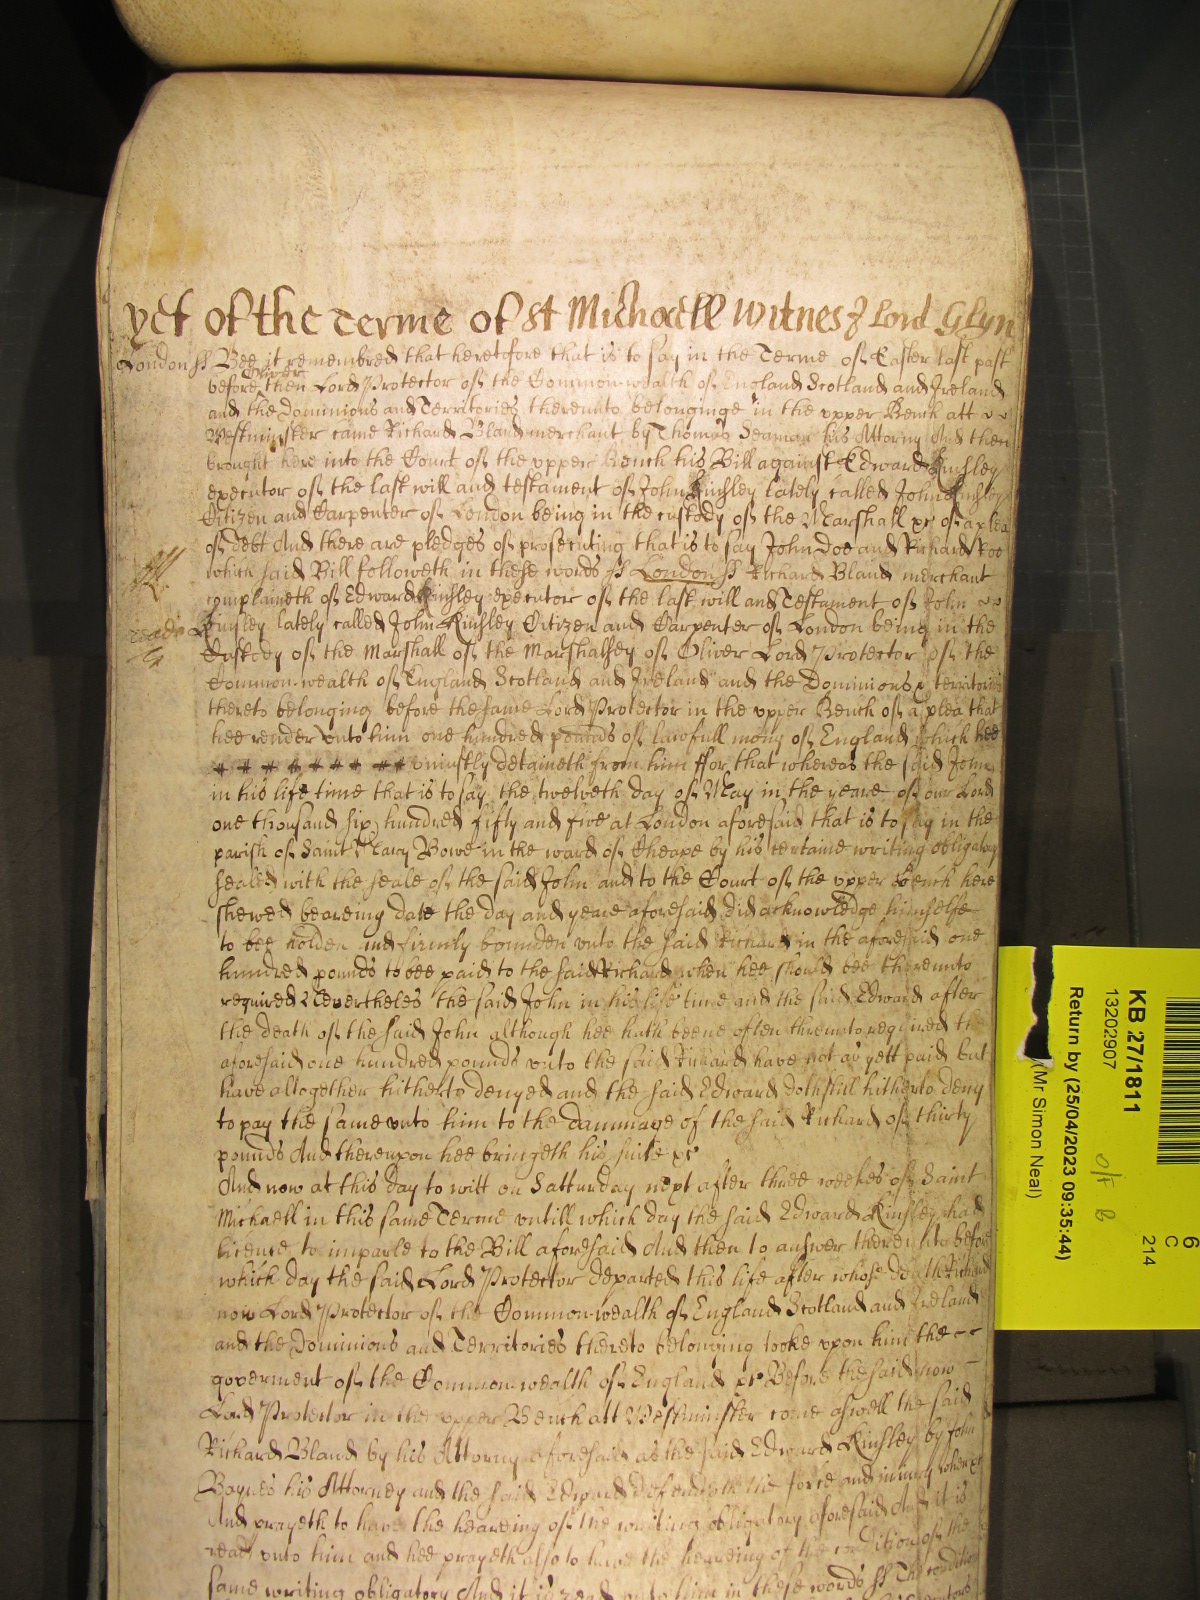 yet of the Terme of St Michaell Witnes Lord Glyn
London ss Bee it remembred that heretofore that is to say in the Terme of Easter last past
before Oliver then Lord Protector of the Common-wealth of England Scotland and Ireland
and the Dominions and Territories thereunto belonginge in the upper Bench att
Westminster came Richard Bland merchant by Thomas Seaman his Attorny And then
brought here into the Court of the upper Bench his Bill against Edward Kinsley
executor of the last will and testament of John Kinsley lately called John Kinsley
Citizen and Carpenter of London being in the custody of the Marshall &c of a plea
of debt And there are pledges of prosecuting that is to say John Doe and Richard Roe
which said Bill followeth in these words ss London ss Richard Bland merchant
complaineth of Edward Kinsley executor of the last will and Testament of John
Kinsley lately called John Kinsley Citizen and Carpenter of London being in the
Custody of the Marshall of the Marshalsey of Oliver Lord Protector of the
Common-wealth of England Scotland and Ireland and the Dominions & territories
thereto belonging before the same Lord Protector in the upper Bench of a plea that
hee render unto him one hundred pounds of lawfull mony of England which hee
uniustly detaineth from him ffor that whereas the said John
in his life time that is to say the twelveth day of May in the yeare of our Lord
one thousand six hundred fifty and five at London aforesaid that is to say in the
parish of Saint Mary Bowe in the ward of Cheape by his certaine writing obligatory
sealed with the seale of the said John and to the Court of the upper Bench here
shewed beareing date the day and yeare aforesaid did acknowledge himselfe
to bee holden and firmly bounden unto the said Richard in the aforesaid one
hundred pounds to bee paid to the said Richard when hee should bee thereunto
required Nevertheles the said John in his life time and the said Edward after
the death of the said John although hee hath beene often thereunto required the
aforesaid one hundred pounds unto the said Richard have not as yett paid but
have altogether hitherto denyed and the said Edward doth still hitherto deny
to pay the same unto him to the dammage of the said Richard of thirty
pounds And thereupon hee bringeth his suite &c
And now at this day to witt on Satturday next after three weekes of Saint
Michaell in this same Terme untill which day the said Edward Kinsley had
licence to imparle to the Bill aforesaid And then to answer thereunto before
which day the said Lord Protector departed this life after whose death Richard
now Lord Protector of the Common-wealth of England Scotland and Ireland
and the Dominions and Territories thereto belonging tooke upon him the
goverment of the Common-wealth of England &c Before the said now
Lord Protector in the upper Bench att Westminster come aswell the said
Richard Bland by his Attorny aforesaid as the said Edward Kinsley by John
Baynes his Attorney and the said Edward defendeth the force and iniury when &c
And prayeth to have the heareing of the writing obligatory aforesaid And it is
read unto him and hee prayeth also to have the heareing of the condition of the
same writing obligatory And it is read unto him in these words ss The condition
KB 27/1811
13202907
Return by (25/04/2023 09:35:44)
(Mr Simon Neal)
6
C
214